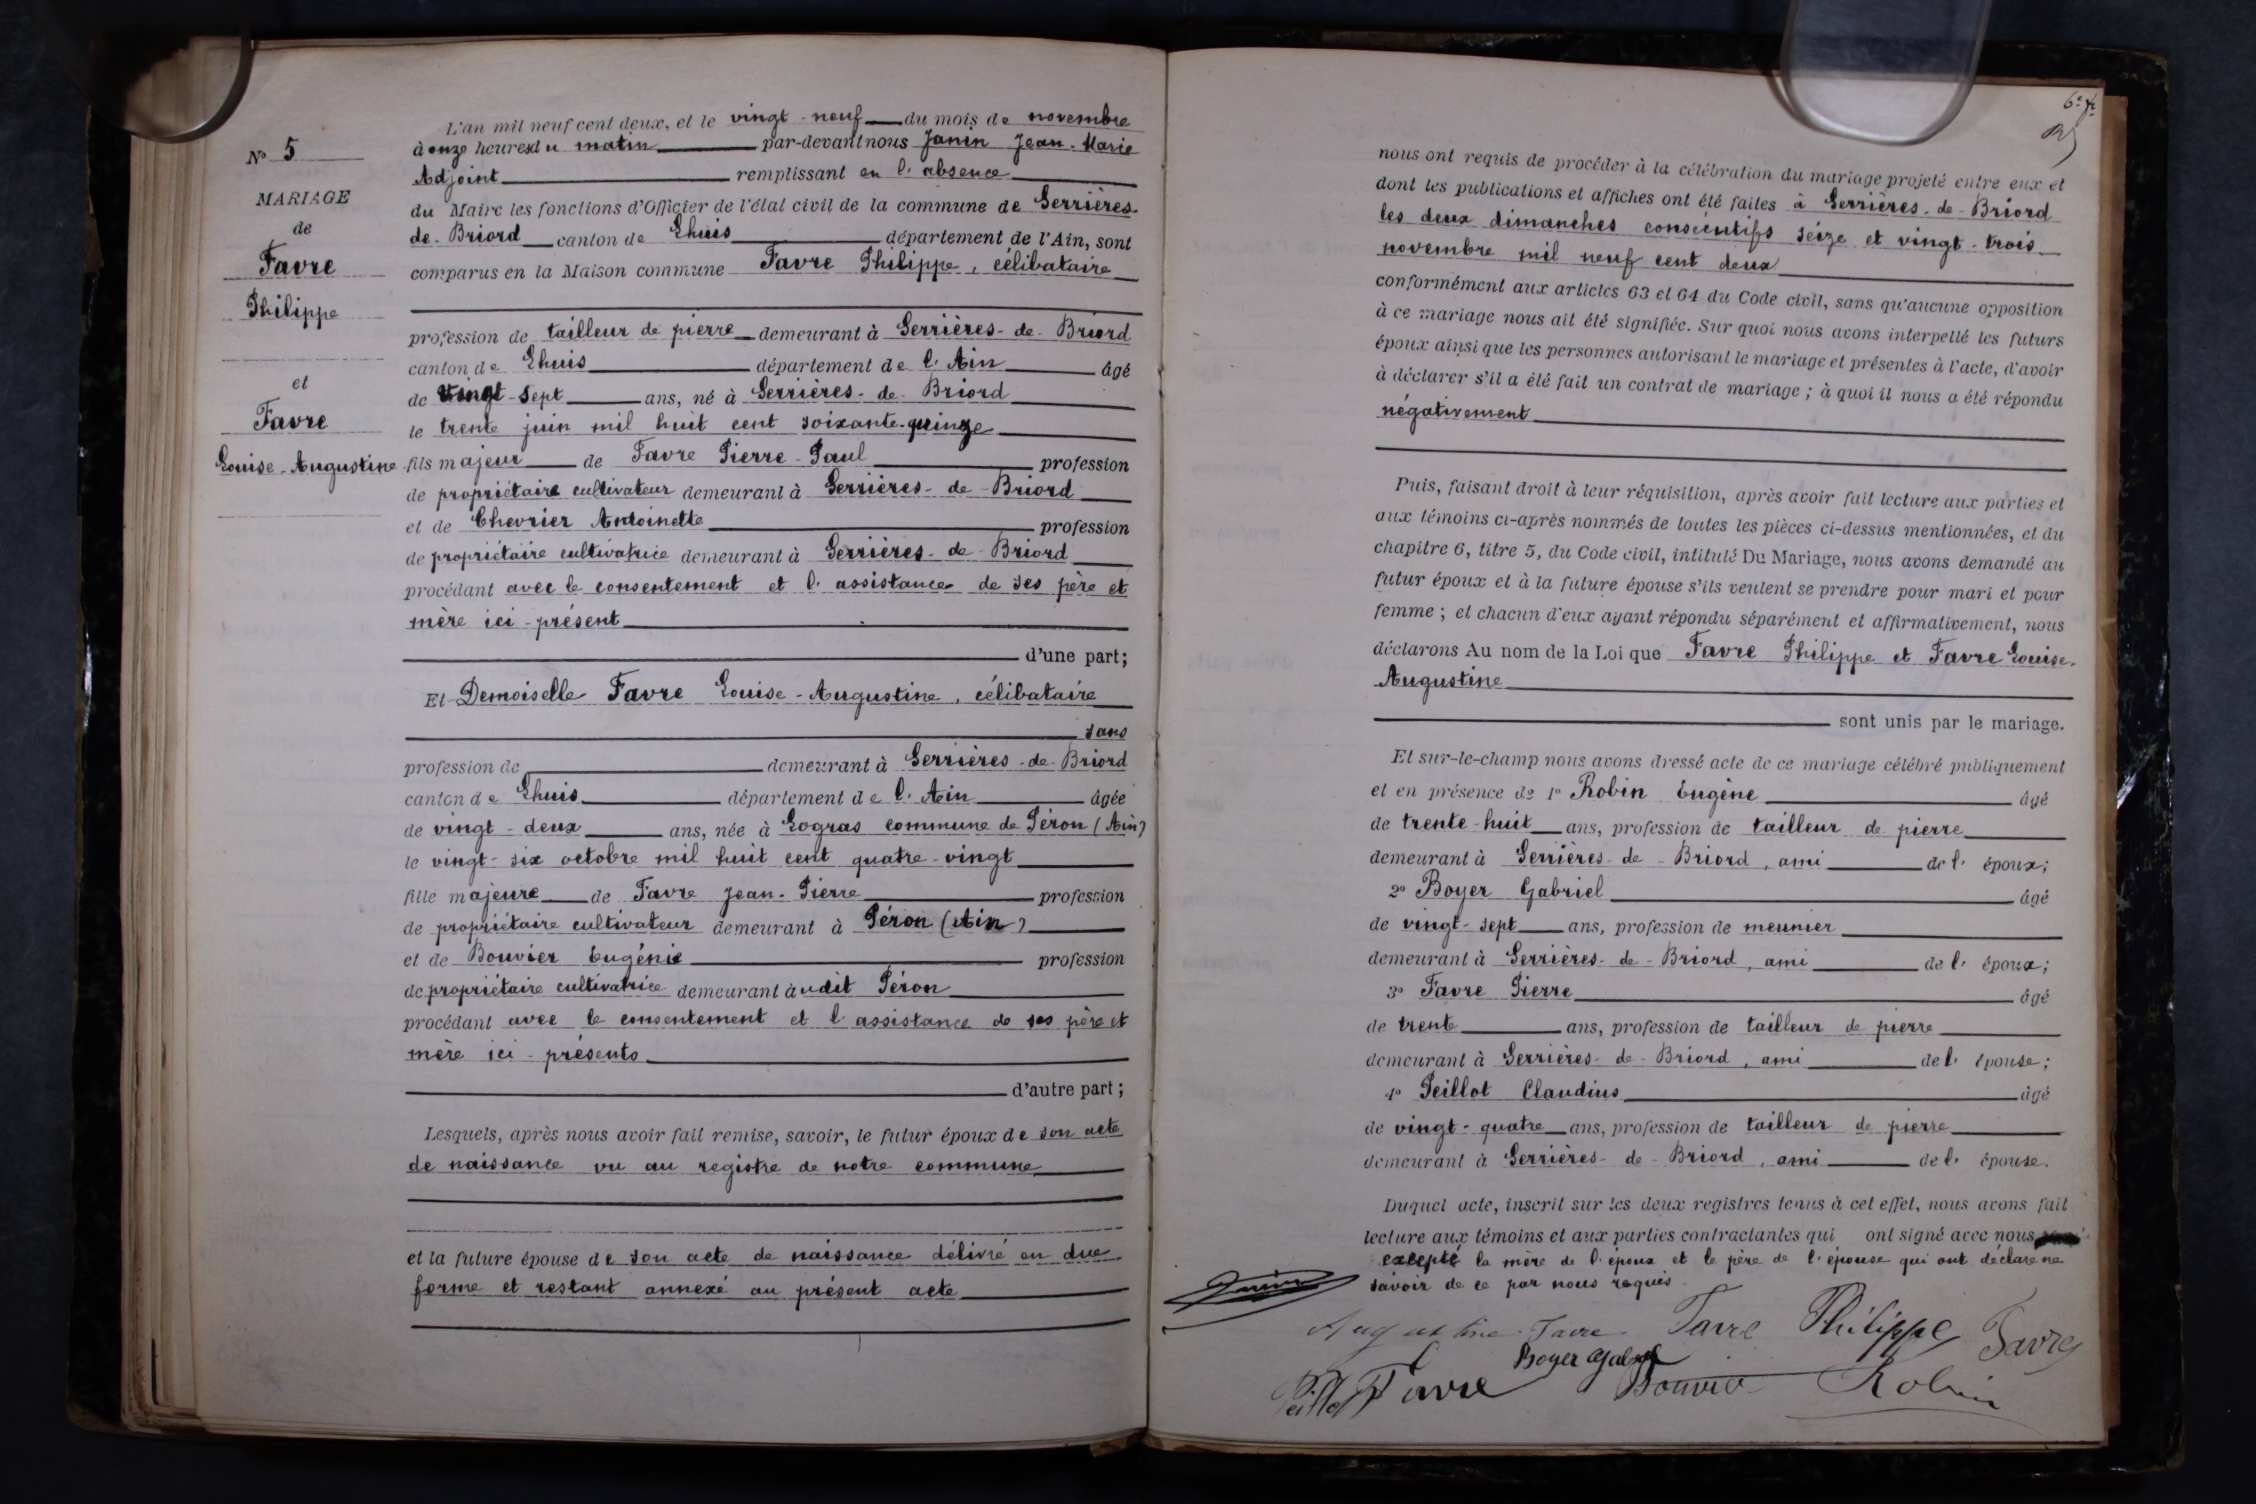 L'an mil neuf cent deux, et le vingt-neuf du mois de novembre
à onze heures du matin par-devant nous Janin Jean-Marie
Adjoint remplissant en l'absence
du Maire les fonctions d'Officier de l'état civil de la commune de Serrières
de-Briord canton de Lhuis département de l'Ain, sont
comparus en la Maison commune Favre Philippe, célibataire
profession de tailleur de pierre demeurant à Serrières-de-Briord
canton de Lhuis département de l'Ain âgé
de vingt-sept ans, né à Serrières-de-Briord
le trente juin mil huit cent soixante-quinze
fils majeur de Favre Pierre-Paul profession
de propriétaire cultivateur demeurant à Serrières-de-Briord
et de Chevrier Antoinette profession
de propriétaire cultivatrice demeurant à Serrières-de-Briord
procédant avec le consentement et l'assistance de ses père et
mère ici-présent
d'une part;
Et Demoiselle Favre Louise-Augustine, célibataire
sans
profession de demeurant à Serrières-de-Briord
canton de Lhuis département de l'Ain âgée
de vingt-deux ans, née à Logras commune de Péron (Ain)
le vingt-six octobre mil huit cent quatre-vingt
fille majeure de Favre Jean-Pierre profession
de propriétaire cultivateur demeurant à Péron (Ain)
et de Bouvier Eugénie profession
de propriétaire cultivatrice demeurant à udit Péron
procédant avec le consentement et l'assistance de ses père et
mère ici-présents
d'autre part;
Lesquels, après nous avoir fait remise, savoir, le futur époux de son acte
de naissance vu au registre de notre commune
et la future épouse de son acte de naissance délivré en due
forme et restant annexé au présent acte
N° 5
MARIAGE
de
Favre
Philippe
et
Favre
Louise-Augustine
nous ont requis de procéder à la célébration du mariage projeté entre eux et
dont les publications et affiches ont été faites à Serrières-de-Briord
les deux dimanches consécutifs seize et vingt-trois
novembre mil neuf cent deux
conformément aux articles 63 et 64 du Code civil, sans qu'aucune opposition
à ce mariage nous ait été signifiée. Sur quoi nous avons interpellé les futurs
époux ainsi que les personnes autorisant le mariage et présentes à l'acte, d'avoir
à déclarer s'il a été fait un contrat de mariage; à quoi il nous a été répondu
négativement
Puis, faisant droit à leur réquisition, après avoir fait lecture aux parties et
aux témoins ci-après nommés de toutes les pièces ci-dessus mentionnées, et du
chapitre 6, titre 5, du Code civil, intitulé Du Mariage, nous avons demandé au
futur époux et à la future épouse s'ils veulent se prendre pour mari et pour
femme; et chacun d'eux ayant répondu séparément et affirmativement, nous
déclarons Au nom de la Loi que Favre Philippe et Favre Louise-
Augustine
sont unis par le mariage.
Et sur-le-champ nous avons dressé acte de ce mariage célébré publiquement
et en présence de 1° Robin Eugène âgé
de trente-huit ans, profession de tailleur de pierre
demeurant à Serrières-de-Briord, ami de l'époux;
2° Boyer Gabriel âgé
de vingt-sept ans, profession de meunier
demeurant à Serrières-de-Briord, ami de l'époux;
3° Favre Pierre âgé
de trente ans, profession de tailleur de pierre
demeurant à Serrières-de-Briord, ami de l'épouse;
4° Peillot Claudius âgé
de vingt-quatre ans, profession de tailleur de pierre
demeurant à Serrières-de-Briord, ami de l'épouse.
Duquel acte, inscrit sur les deux registres tenus à cet effet, nous avons fait
lecture aux témoins et aux parties contractantes qui ont signé avec nous
excepté la mère de l'époux et le père de l'épouse qui ont déclaré ne
savoir de ce par nous requis
Janin
Augustine Favre Favre Philippe Favre
Boyer Gabriel
Peillot Favre Bouvier Robin